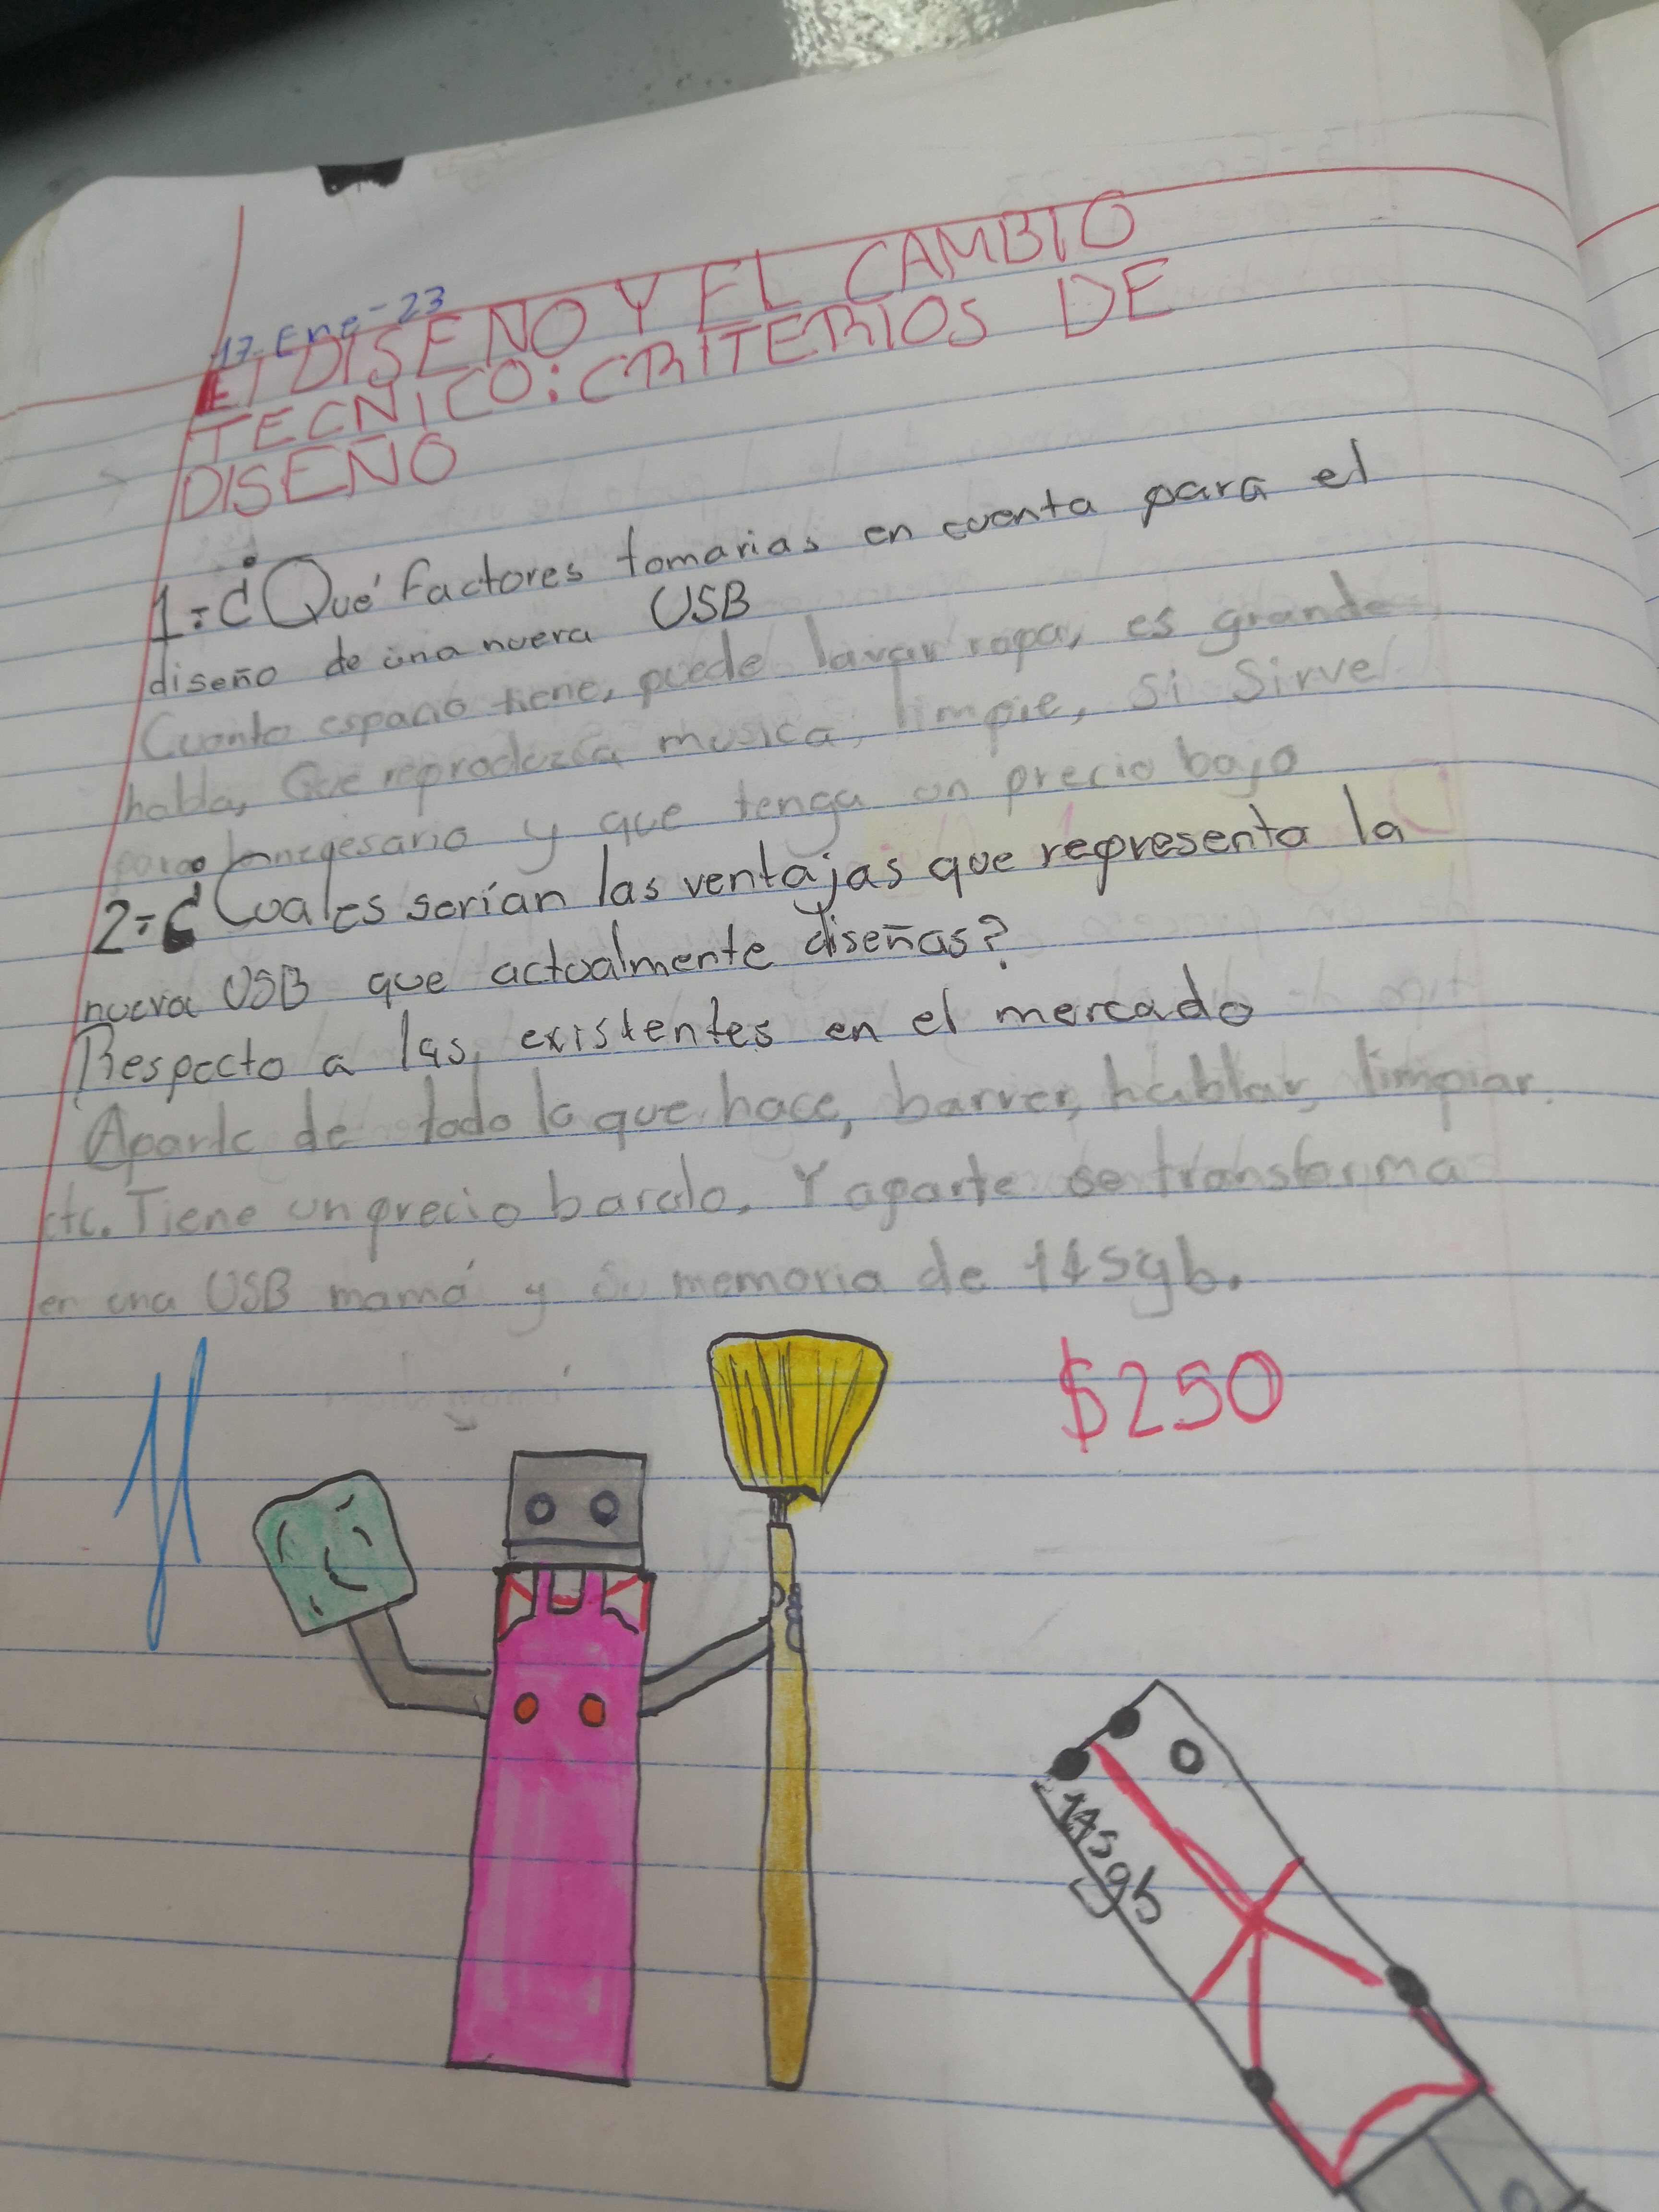 17-Ene-23
El DISEÑO Y EL CAMBIO
TECNICO: CRITERIOS DE
DISEÑO
1-¿Qué factores tomarias en cuenta para el
diseño de una nueva USB
Cuanto espacio tiene, puede lavar ropa, es grande
habla, Que reproduzca musica, limpie, si sirve
para negesario y que tenga un precio bajo
2-¿Cuales serían las ventajas que representa la
nueva USB que actualmente diseñas?
Respecto a las existentes en el mercado
Aparte de todo lo que hace, barrer, hablar, limpiar
etc. Tiene un precio barato. Y aparte se transforma
en una USB mamá y su memoria de 145gb.
$250
145gb